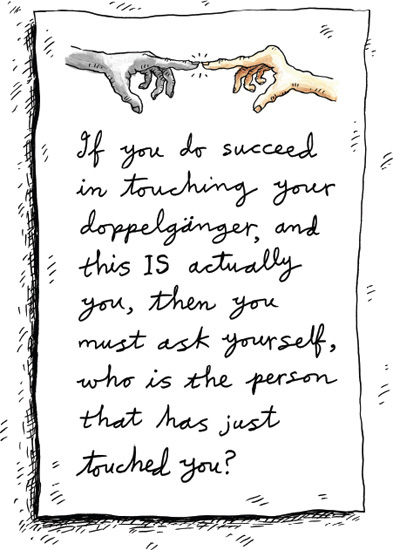 If you do succeed
in touching your
doppelgänger, and
this IS actually
you, then you
must ask yourself,
who is the person
that has just
touched you?